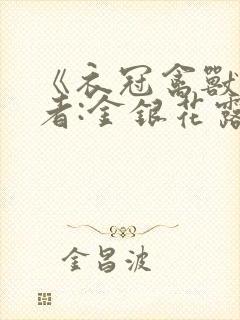 《衣冠禽獸
者:金銀花露
金昌波